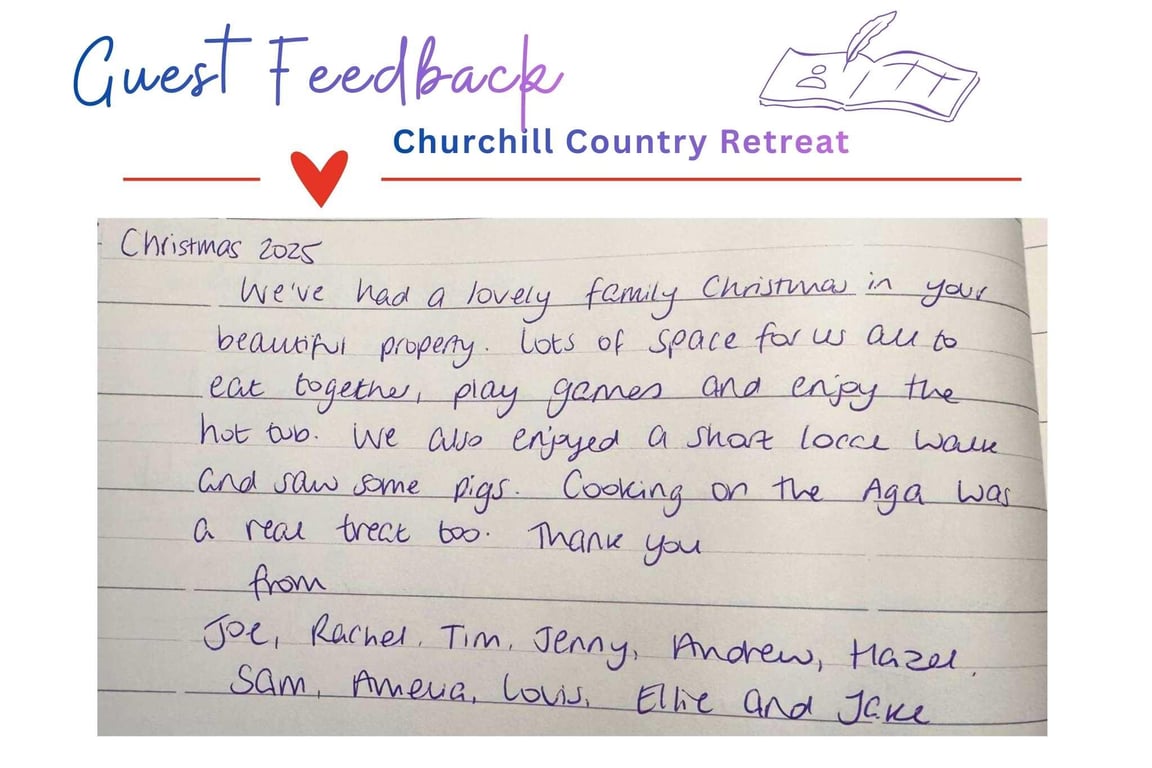 Guest Feedback
Churchill Country Retreat
Christmas 2025
We've had a lovely family Christmas in your
beautiful property. Lots of space for us all to
eat together, play games and enjoy the
hot tub. We also enjoyed a short local walk
and saw some pigs. Cooking on the Aga was
a real treat too. Thank you
from
Joe, Rachel, Tim, Jenny, Andrew, Hazel,
Sam, Amelia, Louis, Ellie and Jake